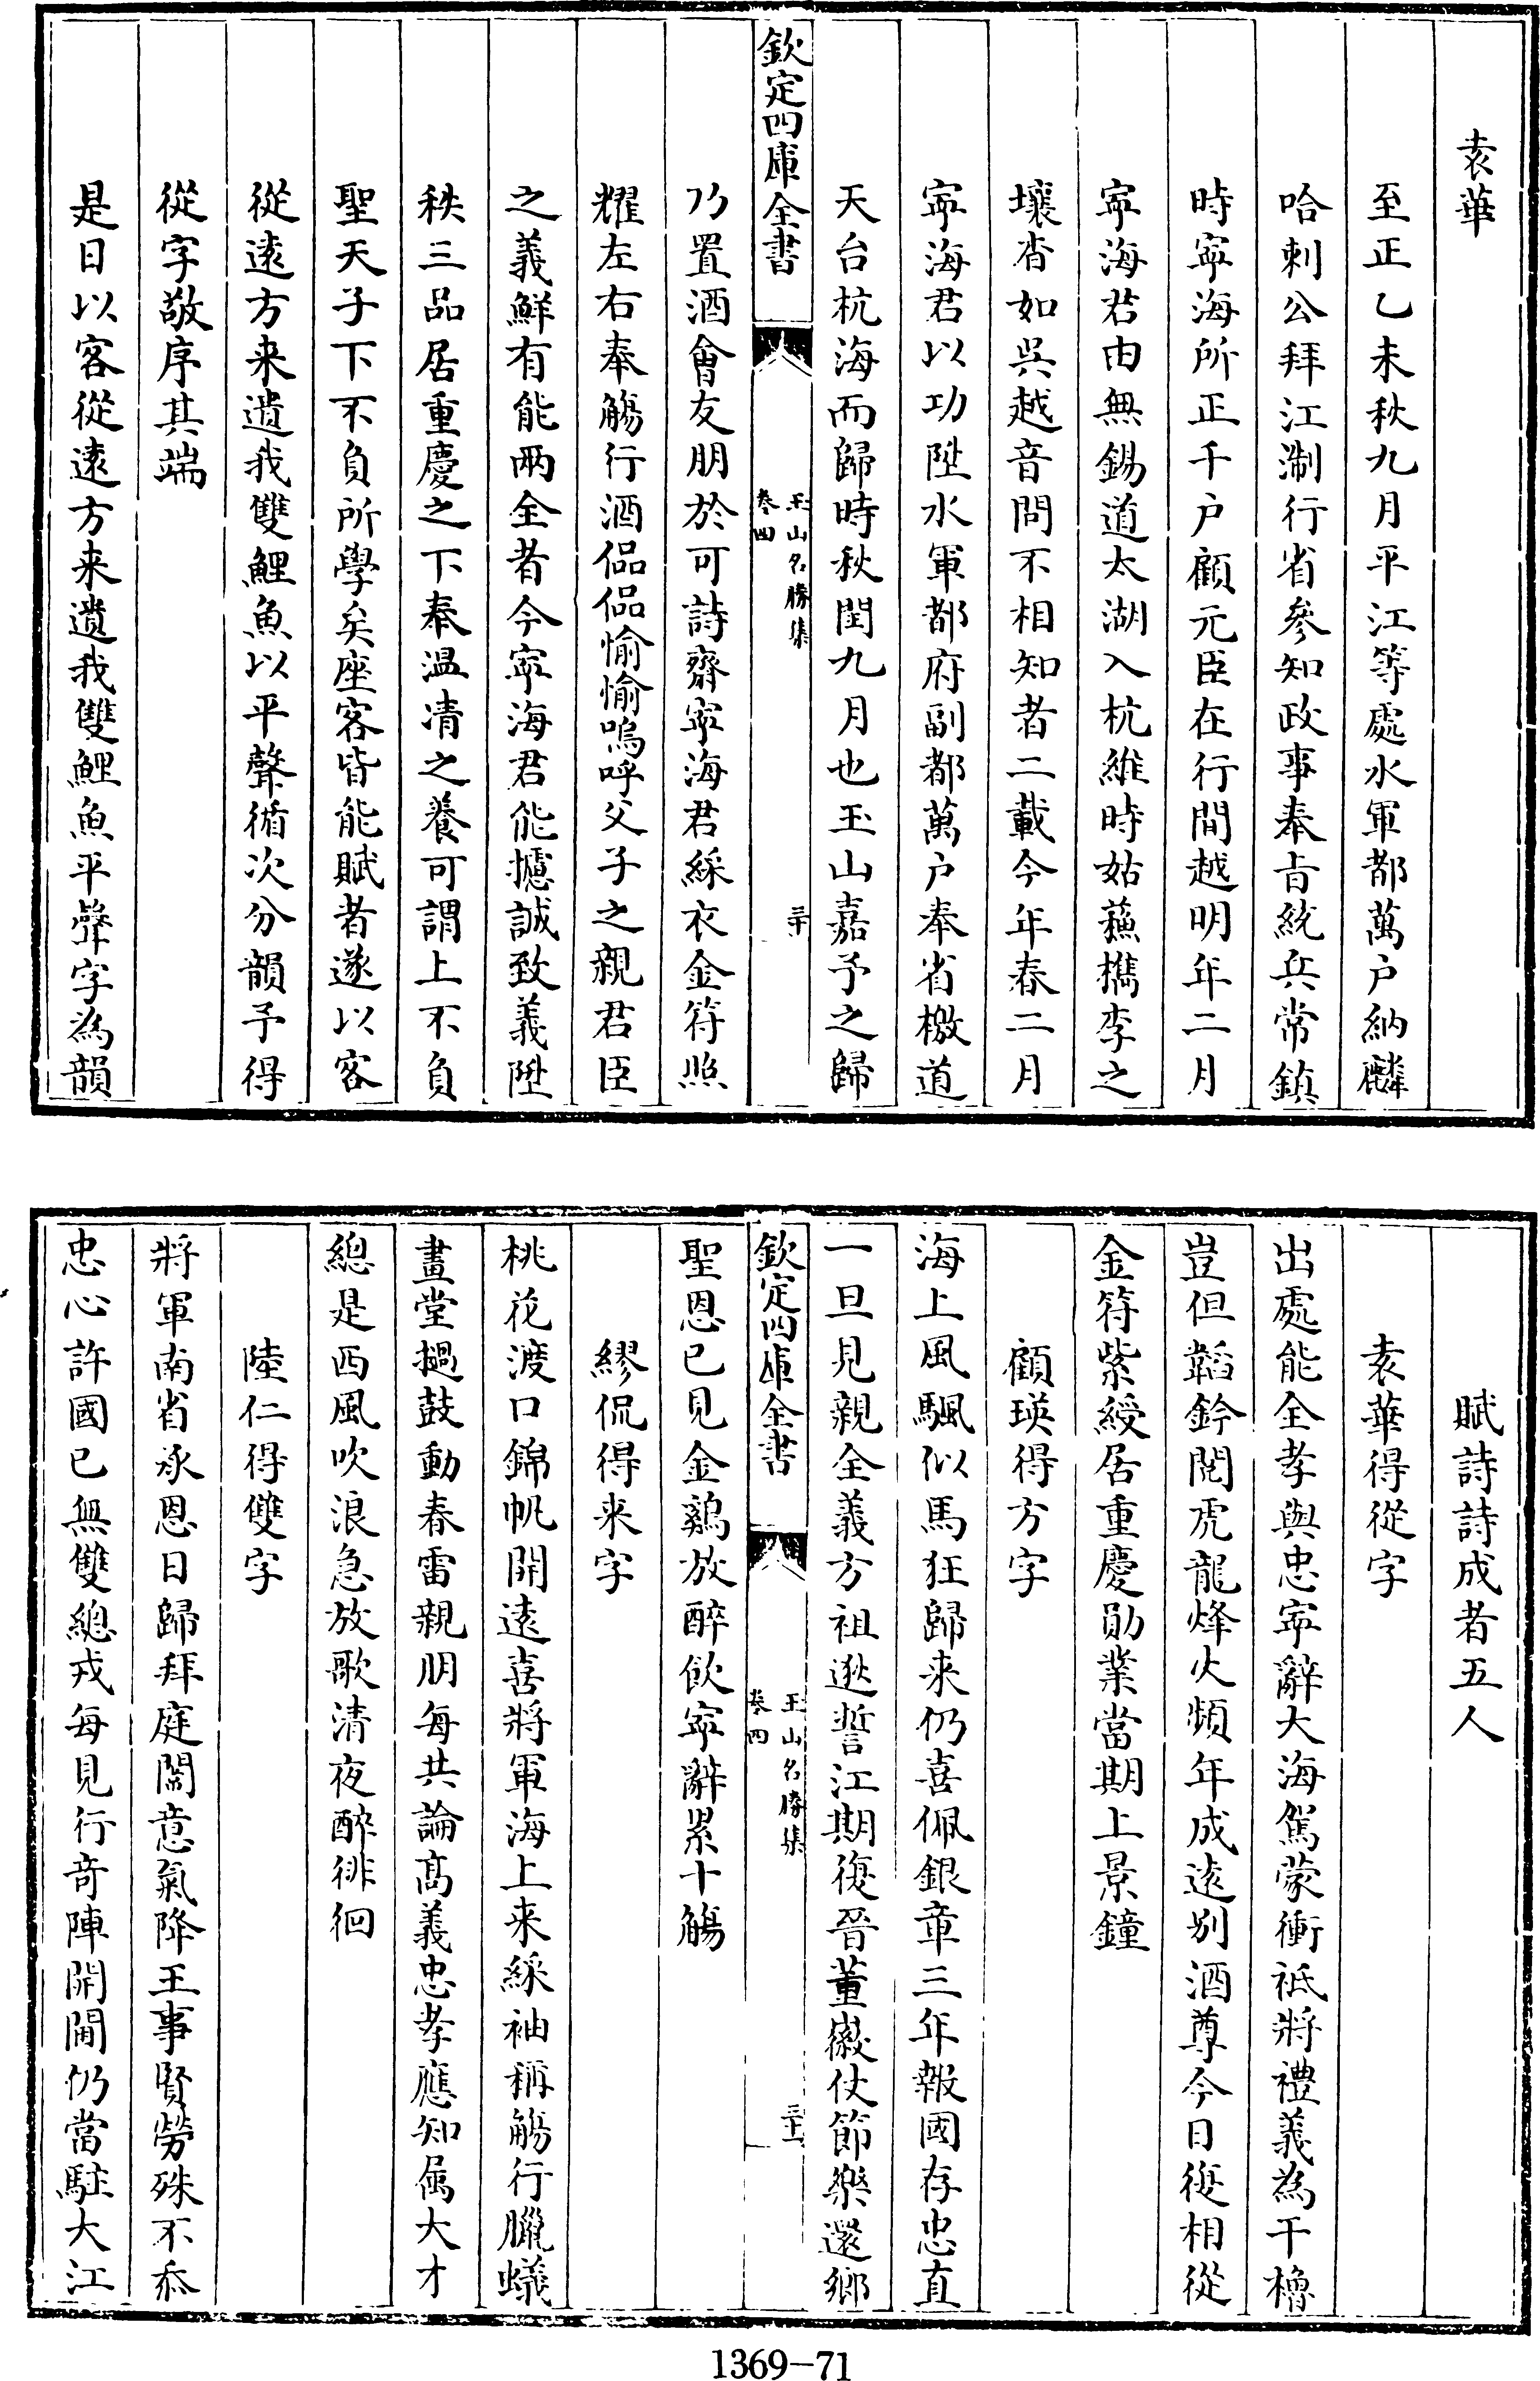 袁華
至正乙未秋九月平江等處水軍都萬户納麟
哈剌公拜江淛行省參知政事奉旨統兵常鎮
時寜海所正千户顧元臣在行間越明年二月
寜海君由無錫道太湖入杭維時姑蘓檇李之
壤沓如呉越音問不相知者二載今年春二月
寜海君以功陞水軍都府副都萬户奉省檄道
天台杭海而歸時秋閏九月也玉山嘉予之歸
欽定四庫全書
玉山名勝集
卷四
三十
乃置酒會友朋於可詩齋寜海君綵衣金符照
耀左右奉觴行酒偘偘愉愉嗚呼父子之親君臣
之義鮮有能兩全者今寜海君能攄誠致義陞
秩三品居重慶之下奉温凊之養可謂上不負
聖天子下不負所學矣座客皆能賦者遂以客
從逺方来遺我雙鯉魚以平聲循次分韻予得
從字敬序其端
是日以客從逺方来遺我雙鯉魚平聲字為韻
賦詩詩成者五人
袁華得從字
出處能全孝與忠寜辭大海駕蒙衝祗將禮義為干櫓
豈但韜鈐閲虎龍烽火頻年成逺别酒尊今日復相從
金符紫綬居重慶勛業當期上景鐘
顧瑛得方字
海上風颿似馬狂歸来仍喜佩銀章三年報國存忠直
一旦見親全義方祖逖誓江期復晉董徽仗節樂還鄉
欽定四庫全書
玉山名勝集
卷四
三十一
聖恩已見金鷄放醉飲寜辭累十觴
繆侃得来字
桃花渡口錦帆開逺喜將軍海上来綵袖稱觴行臘蟻
畫堂撾鼓動春雷親朋每共論髙義忠孝應知屬大才
總是西風吹浪急放歌清夜醉徘徊
陸仁得雙字
將軍南省承恩日歸拜庭闈意氣降王事賢勞殊不忝
忠心許國已無雙總戎每見行奇陣開閫仍當駐大江
1369－71